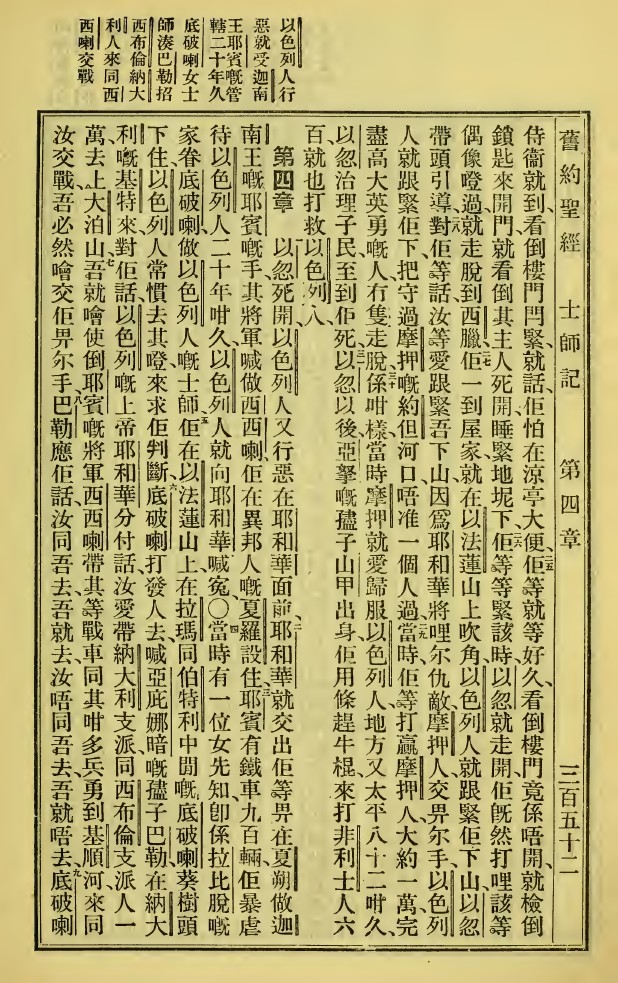 以色列人行
惡就受迦南
王耶賓嘅管
轄二十年久
底破喇女士
師湊巴勒招
西布倫納大
利人來同西
西喇交戰
舊約聖經 士師記 第四章 三百五十二
侍衞就到、看倒樓門閂緊、就話、佢怕在涼亭大便、二五佢等就等好久、看倒樓門竟係唔開、就檢倒
鎖匙來開門、就看倒其主人死開睡緊地坭下、二六佢等等緊該時、以忽就走開、佢旣然打哩該等
偶像嶝過、就走脫到西臘、二七佢一到屋家、就在以法蓮山上吹角、以色列人就跟緊佢下山、以忽
帶頭引導、二八對佢等話、汝等愛跟緊吾下山、因爲耶和華將哩尔仇敵摩押人交畀尔手、以色列
人就跟緊佢下、把守過摩押嘅約但河口、唔准一個人過、二九當時佢等打贏摩押人大約一萬、完
盡高大英勇嘅人、冇隻走脫、三十係咁樣當時摩押就愛歸服以色列人、地方又太平八十二咁久、
以忽治理子民、至到佢死、三一以忽以後、亞拏嘅孻子山甲出身、佢用條趕牛棍、來打非利士人六
百、就也打救以色列人、
第四章 以忽死開、以色列人又行惡在耶和華面前、二耶和華就交出佢等畀在夏朔做迦
南王嘅耶賓嘅手、其將軍喊做西西喇、佢在異邦人嘅夏羅設住、三耶賓有鐵車九百輛、佢暴虐
待以色列人二十年咁久、以色列人就向耶和華喊寃、〇四當時有一位女先知、卽係拉比脫嘅
家眷底破喇、做以色列人嘅士師、五佢在以法蓮山上、在拉瑪同伯特利中間嘅底破喇葵樹頭
下住、以色列人常慣去其嶝來求佢判斷、六底破喇打發人去喊亞庇娜暗嘅孻子巴勒、在納大
利嘅基特來、對佢話、以色列嘅上帝耶和華分付話、汝愛帶納大利支派、同西布倫支派人一
萬、去上大泊山、七吾就噲使倒耶賓嘅將軍西西喇、帶其等戰車、同其咁多兵勇、到基順河來同
汝交戰、吾必然噲交佢畀尔手、八巴勒應佢話、汝同吾去、吾就去、汝唔同吾去、吾就唔去、九底破喇